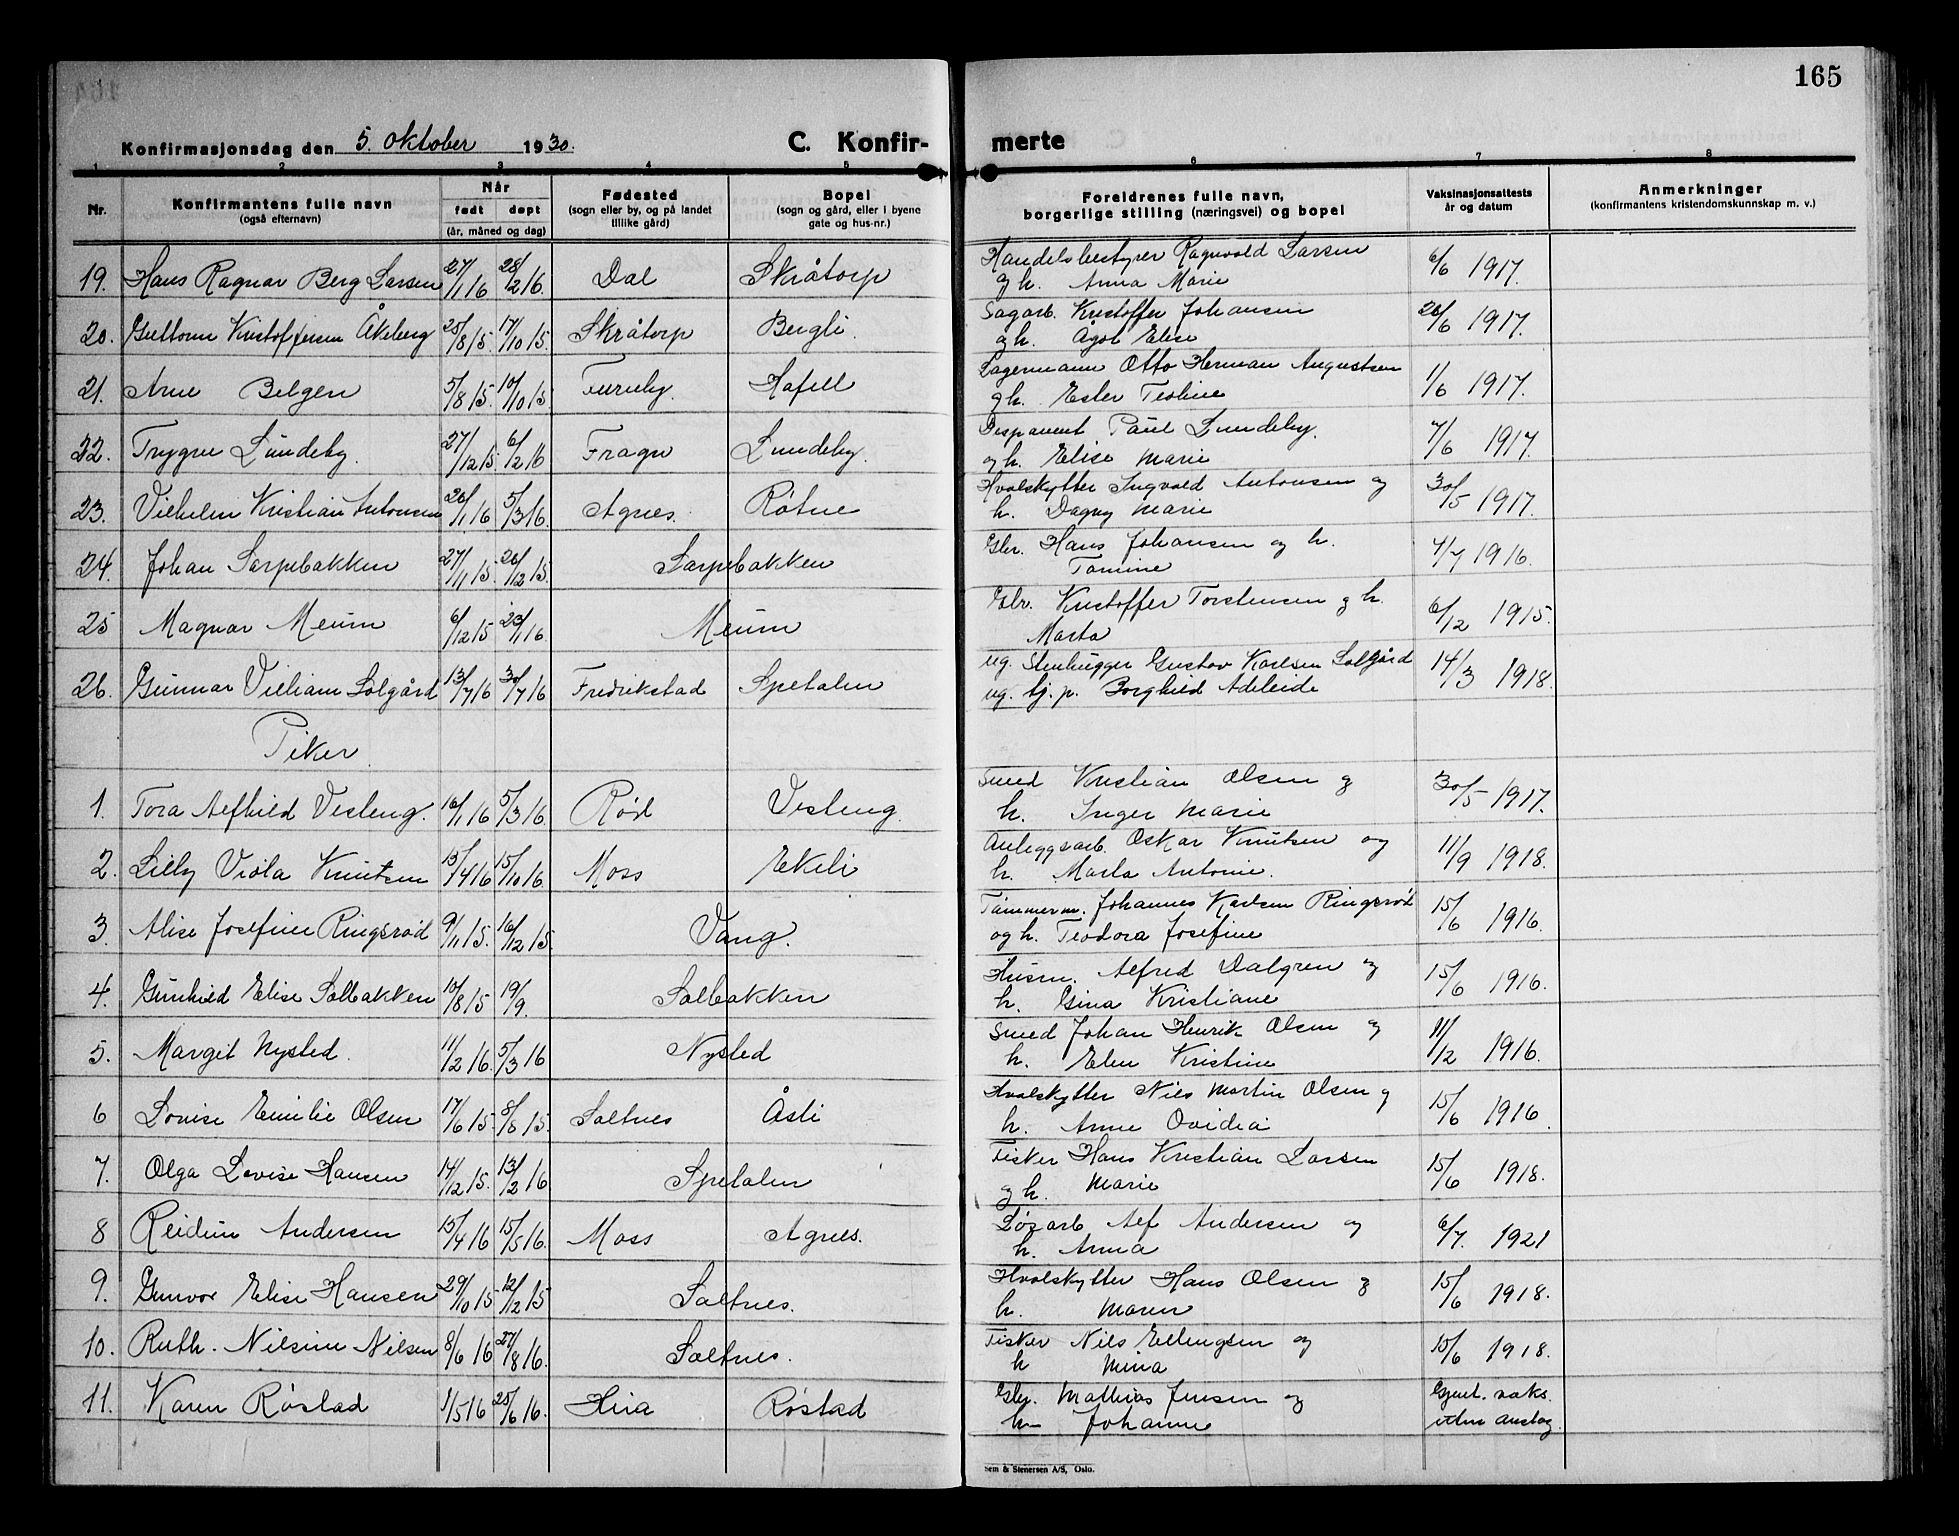 165
Konfirmasjonsdag den 5. oktober 1930. C. Konfir- merte
1 2 3 4 5 6 7 8
Nr. Konfirmantens fulle navn (også efternavn) Når født døpt (år, måned og dag) Fødested (sogn eller by, og på landet tillike gård) Bopel (sogn og gård, eller i byene gate og hus-nr.) Foreldrenes fulle navn, borgerlige stilling (næringsvei) og bopel Vaksinasjonsattests år og datum Anmerkninger (konfirmantens kristendomskunnskap m. v.)
19. Hans Ragnar Berg Larsen 27/1 16 28/2 16. Dal Skråtorp Handelsbestyrer Ragnvald Larsen 6/6 1917.
og h. Anna Marie
20. Guttorm Kristoffersen Åkeberg 25/8 15. 17/10 15. Skråtorp Bergli Sagarb. Kristoffer Johansen 26/6 1917.
og h. Ågot Elise
21. Arne Belgen 5/8 15. 10/10 15 Furuby. Hafell Lagermann Otto Herman Augustsen 1/6 1917.
og h. Ester Teoline
22. Trygve Lundeby. 27/12 15. 6/2 16 Fragn Lundeby. Disponent Paul Lundeby. 7/6 1917.
og h. Elise Marie
23. Vilhelm Kristian Antonsen 20/1 16 5/3 16. Agnes. Røtne Hvalskytter Ingvald Antonsen og 30/5 1917.
h. Dagny Marie
24. Johan Sarpebakken 27/11 15. 26/12 15. Sarpebakken Gbr. Hans Johansen og h. 4/7 1916.
Tomine
25 Magnar Meum 6/12 15 23/1 16. Meum Gbr. Kristoffer Torstensen og h. 6/12 1915.
Marta
26. Gunnar Viliam Solgård 13/7 16 30/7 16 Fredrikstad Spetalen ug. Stenhugger Gustav Karlsen Solgård 14/3 1918.
ug. tj. p. Borghild Adeleide
Piker.
1. Tora Alfhild Vesteng. 16/1 16 5/3 16. Rød Vesteng. Smed Kristian Olsen og 30/5 1917.
h. Inger Marie
2. Lilly Viola Knutsen 15/4 16 15/10 16. Moss Ekeli Anleggsarb. Oskar Knutsen og 11/9 1918.
h. Marta Antonie.
3. Alise Josefine Ringsrød 9/11 15. 16/12 15. Vang. Tømmerm. Johannes Karlsen Ringsrød 15/6 1916.
og h. Teodora Josefine
4. Gunhild Elise Solbakken 10/8 15 19/9. Solbakken Husm. Alfred Dalgren og 15/6 1916.
h. Gina Kristiane
5. Margit Nysted. 11/2 16. 5/3 16 Nysted Smed Johan Henrik Olsen og 11/12 1916.
h. Elen Kristine
6 Lovise Emilie Olsen 17/6 15. 8/8 15. Saltnes Åsli Hvalskytter Nils Martin Olsen og 15/6 1916.
h. Anne Ovidia
7. Olga Lovise Hansen 14/12 15. 13/2 16 Spetalen Fisker Hans Kristian Larsen 15/6 1918.
og h. Marie
8 Reidun Andersen 15/4 16 15/5 16. Moss Agnes. Løsarb. Alf Andersen og 6/7. 1921
h. Anna
9. Gunvor Elise Hansen 29/10 15 12/12 15 Saltnes. Hvalskytter Hans Olsen og 15/6 1918.
h. Maren
10. Ruth. Nilsine Nilsen 8/6 16 27/8 16. Saltnes. Fisker Nils Ellingsen og 15/6 1918.
h Mina
11. Karen Røstad 1/5 16 25/6 16. Hua Røstad Gbr. Mathias Jensen og Gjent. vaks.
h- Johanne uten anslag.
Sem & Stenersen A/S, Oslo.